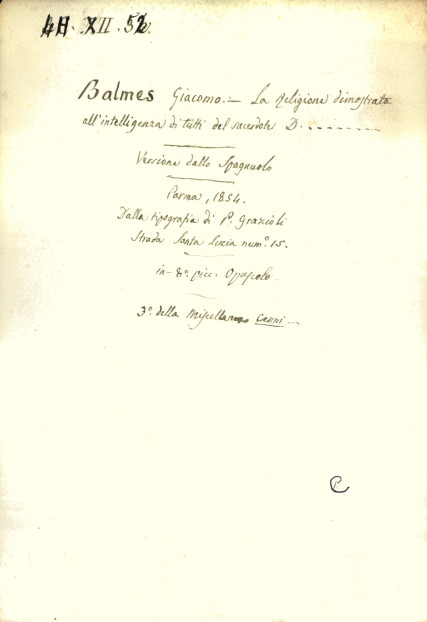 XII. 52.
Balmes Giacomo. — La Religione dimostrata
all'intelligenza di tutti del sacerdote D. . . . . . . .
Versione dallo Spagnuolo
Parma, 1854.
Dalla tipografia di P. Grazioli
Strada Santa Lucia num.° 15.
in-8.° picc. Opuscolo
3.° della Miscellanea Cenni —
C